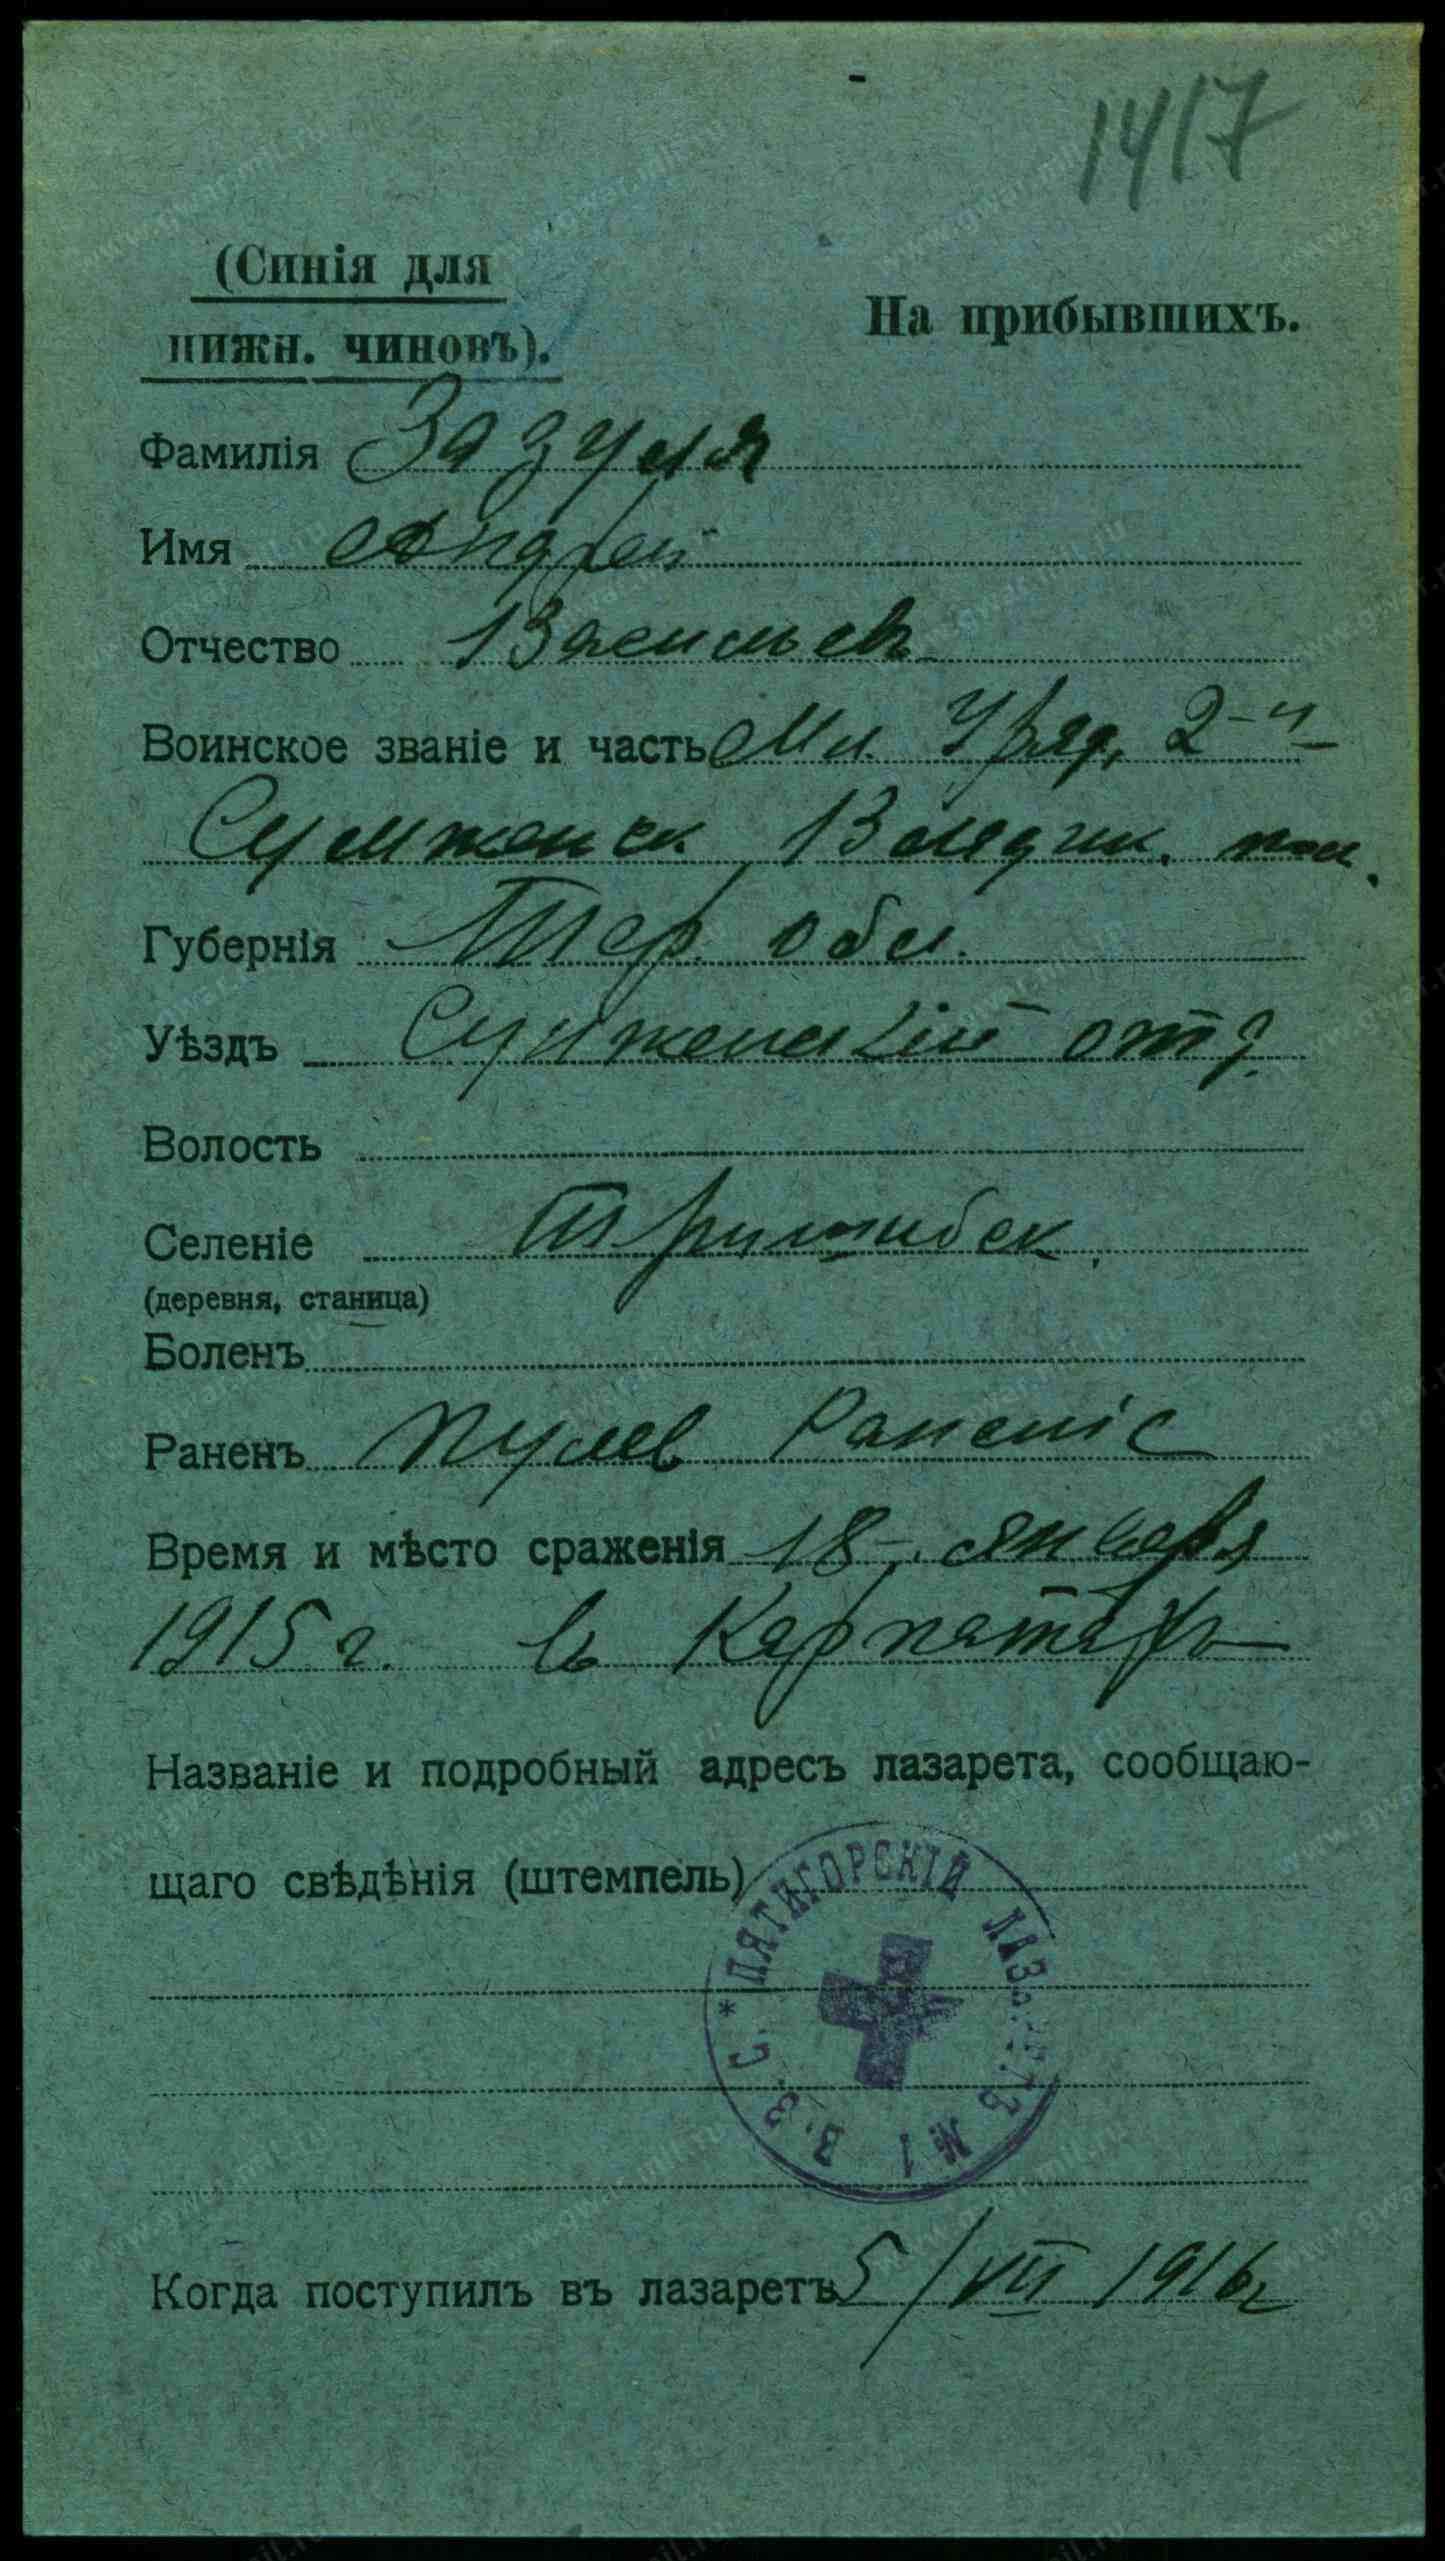 1417
(Синія для
нижн. чиновъ).
На прибывшихъ.
Фамилія Зазуля
Имя Андрей
Отчество Васильев
Воинское званіе и часть Мл. Уряд. 2-й
Сунженск Владик. пол.
Губернія Тер. обл.
Уѣздъ Сунженскій отд.
Волость
Селеніе
(деревня, станица)
Боленъ
Раненъ пулев Раненіе
Время и мѣсто сраженія 18 января
1915 г. въ Карпатахъ
Названіе и подробный адресъ лазарета, сообщаю-
щаго свѣдѣнія (штемпель)
* ПЯТИГОРСКІЙ ЛАЗАРЕТЪ №1 В.З.С.
Когда поступилъ въ лазаретъ 5/VII 1916 г